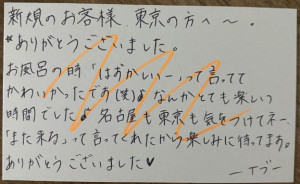 新規のお客様、東京の方へ〜。
*ありがとうございました。
お風呂の時「はずかしいー」って言ってて
かわいかったであ(笑)♪なんかとても楽しい
時間でした♪名古屋も東京も気をつけてネー、
「また来る」って言ってくれたから楽しみに待ってます。
ありがとうございました♥